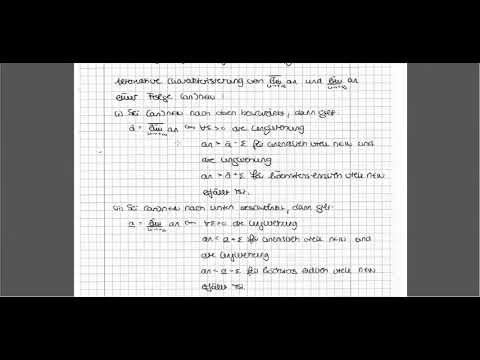 Alternative Charakterisierung von lim̅ n→∞ an und lim̲ n→∞ an
einer Folge (an)n∈ℕ:
(i) Sei (an)n∈ℕ nach oben beschränkt, dann gilt:
a̅ = lim̅ n→∞ an ⇔ ∀ε>0 die Ungleichung
an > a̅ - ε für unendlich viele n∈ℕ und
die Ungleichung
an > a̅ + ε für höchstens endlich viele n∈ℕ
erfüllt ist.
(ii) Sei (an)n∈ℕ nach unten beschränkt, dann gilt:
a̲ = lim̲ n→∞ an ⇔ ∀ε>0 die Ungleichung
an < a̲ + ε für unendlich viele n∈ℕ und
die Ungleichung
an < a̲ - ε für höchstens endlich viele n∈ℕ
erfüllt ist.